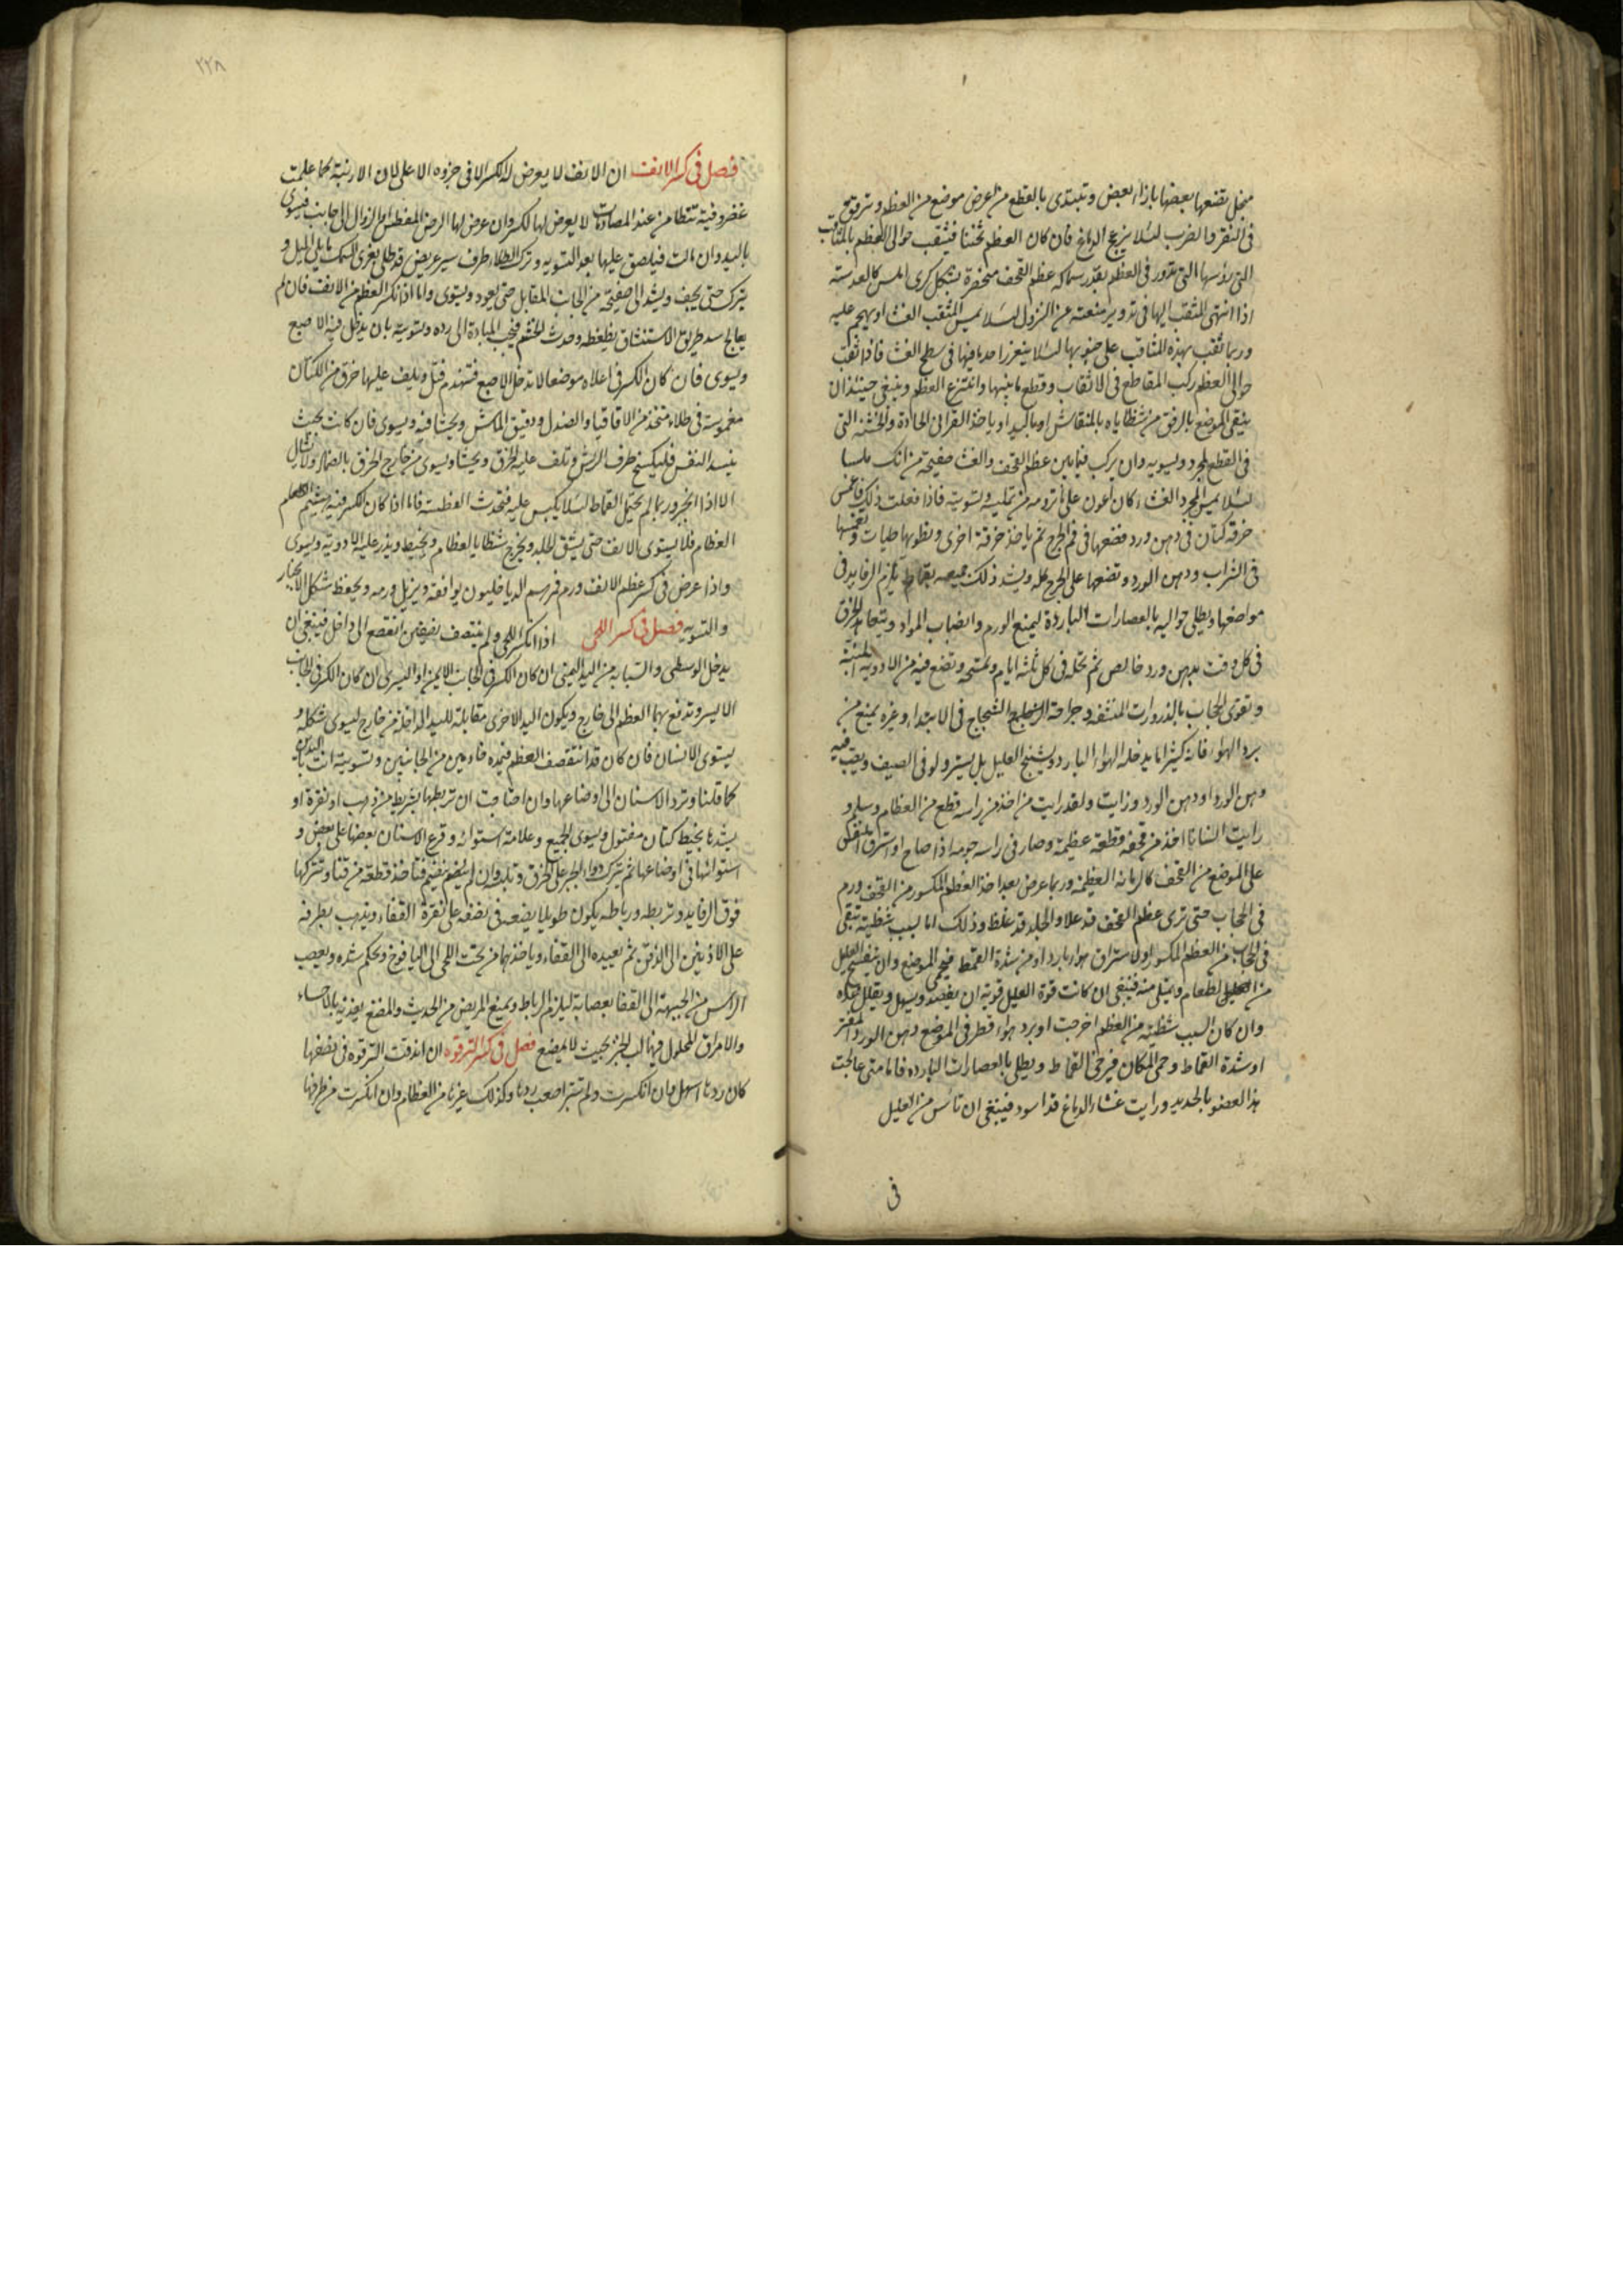 منجل تضعها بعضها بازاء بعض وتبتدى بالقطع من اعرض موضع من العظم وترفق
فى النقر والضرب لئلا يزعج الدماغ فان كان العظم ثخينا فيثقب حوالى العظم بالمثاقب
التى رؤسها التى تدور فى العظم بقدر سماكه عظم القحف منحفرة بشكل كرى املس كالعدسة
اذا انتهى المثقب اليها فى تدويره منعته عن النزول لئلا يمس المثقب الغشا او يهجم عليه
وربما ثقب بهذه المثاقب على جنوبها لئلا ينغرز احد اضها فى سطح الغشا فاذا ثقبت
حوالى العظم ركب المقاطع فى الاثقاب وقطع ما بينها وانتزع العظم وينبغى حينئذ ان
ينقى الموضع بالرفق من شظاياه بالمنقاش او باليد او ياخذ القرانى الحادة والخشنه التى
فى القطع بمجرد ويسويه وان يركب فيما بين عظم القحف والغشا صفيحة من انك ملسا
لئلا يمس المجرد الغشاء كان اعون على ما ترومه من تمليسه وتسويته فاذا فعلت ذلك فاغمس
خرقه كتان فى دهن ورد فضعها فى فم الجرح ثم ياخذ خرقة اخرى ويطويها طيات وتغمسها
فى الشراب ودهن الورد وتضعها على الجرح كله ويشد ذلك جميعه بقماط يلزم الرفايد فى
مواضعها ويطلى حواليه بالعصارات الباردة ليمنع الورم وانصباب المواد ويتعاهد الخرق
فى كل وقت بدهن ورد خالص ثم تحله فى كل ثلثة ايام وتمسحه وتضع فيه من الادويه المنبتة
وتقوى الحجاب بالذرورات المنشفه وجراحة الشجاج فى الابتداء وغيره يمنع من
برد الهواء فانه كثيرا ما يدخله الهواء البارد ويشنج العليل بل يستر ولو فى الصيف ويصب فيه
دهن الورد او دهن الورد وزايت ولقد رايت من اخذ من راسه قطع من العظام وسلم و
رايت انسانا اخذ من قحفه قطعة عظيمة وصار فى راسه حومه اذا صاح او استرق النفس
على الموضع من القحف كالرمانه العظيمه وربما عرض بعد اخذ العظم المكسور من القحف ورم
فى الحجاب حتى ترى عظم القحف قد علا والجلد قد غلظ وذلك اما بسبب شظية تبقى
فى الحجاب من العظم المكسور او لاستراق هوا بارد او من شدة القمط فيحمى الموضع وان ينفسخ العليل
من الطعام ويمتلى منه فينبغى ان كانت قوة العليل قوية ان يفصد ويسهل ويقلل غذاه
وان كان السبب شظية من العظم اخرجت او برد هواء قطر فى الموضع دهن الورد المفتر
او شدة القماط وحمى المكان فيرخى القماط ويطلى بالعصارات البارده فاما متى عالجت
هذا العضو بالحديد ورايت غشاء الدماغ قد اسود فينبغى ان تائس من العليل
فى
٢٢٨
فصل فى كسر الانف ان الانف لا يعرض له الكسر الا فى جزوه الاعلى لان الارنبة كما علمت
غضروفية تتطامن عند المصادمات لا يعرض لها الكسر وان عرض لها الرض المفطس او الزوال الى جانب فيسوى
باليد وان مالت فيلصق عليها بعد التسويه وترك الطلاء طرف سير عريض قد طلى بغرى السمك ما يلى الميل و
يترك حتى يجف ويشد الى صفيحة من الجانب المقابل حتى يعود ويستوى واما اذا نكسر العظم من الانف فان لم
يعالج سد طريق الاستنشاق بطغطه وحدث الخشم فيجب المبادة الى رده وتسويته بان يدخل فيه الاصبع
ويسوى فان كان الكسر فى اعلاه موضعا لا تدخل الاصبع فتهندم فتل ويلف عليها خرق من الكتان
مغموسة فى طلاء متخذ من الاقاقيا والصندل ودقيق الماش ويحشا فيه ويسوى فان كانت بحيث
ينسد النفس فليكسح طرف الريش وتلف عليه الخرق ويحشا ويسوى من خارج الخرق بالضماد ولا تشال
الا اذا انجبر وربما لم يحتمل القماط لئلا يكبس عليه فتحدث الفطسة فاما اذا كان الكسر فيه تهشيم
العظام فلا يستوى بالانف حتى يشق الجلد ويخرج شظايا العظام ويخيط ويذر عليه الادويه ويسوى
واذا عرض فى كسر عظم الانف ورم فمرهم الدياخليون يوافقه ويزيل ورمه ويحفظ شكل الانجبار
والتسويه فصل فى كسر اللحى اذا انكسر اللحى ولم ينقصف بقيضين انقصع الى داخل فينبغى ان
يدخل الوسطى والسبابه من اليد اليمنى ان كان الكسر فى الجانب الايمن او اليسرى ان كان الكسر فى الجانب
الايسر وتدفع بهما العظم الى خارج ويكون اليد الاخرى مقابلة لليد الداخله من خارج ليسوى شكله و
يستوى الاسنان فان كان قد انقصف العظم فيمده خادمين من الجانبين وتسويته انت باليدين
كما قلنا وترد الاسنان الى اوضاعها وان احتاجت ان تربطها بشريط من ذهب او نقرة او
يشدها بخيط كتان مفتول ويسوى الجميع وعلامة استوائه وقرع الاسنان بعضها على بعض و
استوائها فى اوضاعها ثم يترك دواء الجبر على الخرق وتلبد وان لم يضم تضم قنا خذ قطعة من قنا وتتركها
فوق الرفايد وتربطه ورباطه يكون طويلا يضعه فى نصفه على نقرة القفاء ويذهب بطرفيه
على الاذنين الى الذقن ثم يعيده الى القفاء وياخذ بهما من تحت اللحى الى اليافوخ ويحكم شده ويعصب
الراس من الجبهة الى القفا بعصابة ليلزم الرباط ويمنع المريض من الحديث والمضغ يغذيه بالاحساء
والامراق المحلول فيها لب الخبز بحيث لا يمضغ فصل فى كسر الترقوه ان اندقت الترقوة فى نصفها
كان ردها اسهل وان انكسرت ولم تتبرا صعب ردها وكذلك غيرها من العظام وان انكسرت من طرفها